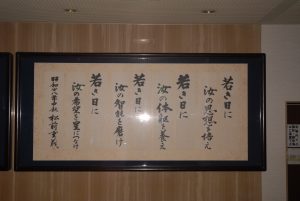 若き日に
汝の思想を培え
若き日に
汝の体軀を養え
若き日に
汝の智能を磨け
若き日に
汝の希望を星につなげ
松前重義